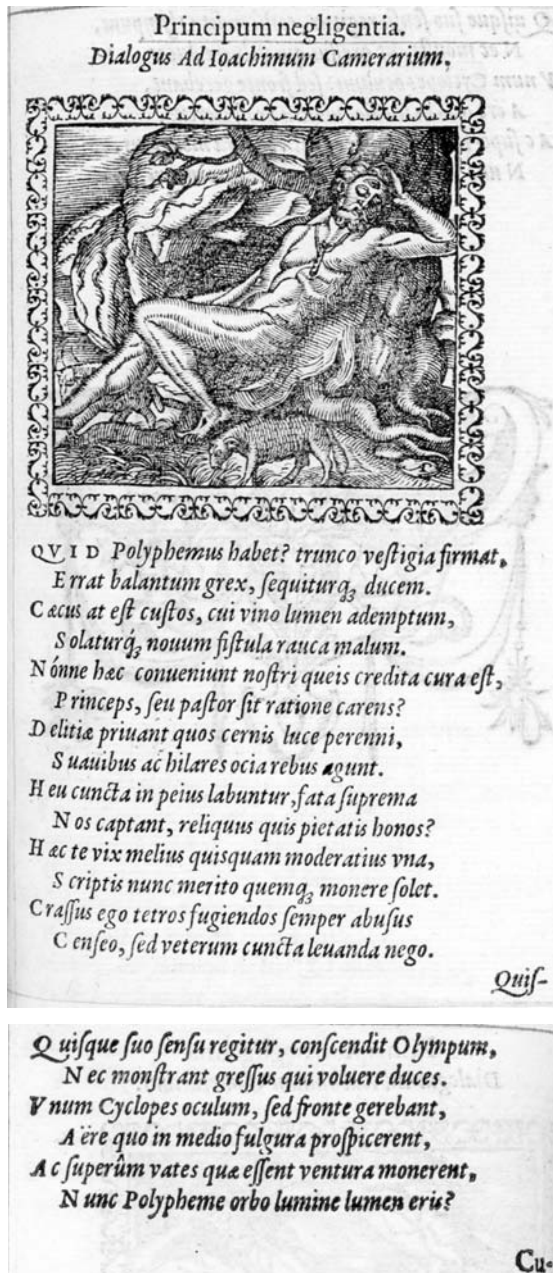 Principum negligentia.
Dialogus Ad Ioachimum Camerarium,
QVID Polyphemus habet? trunco veſtigia firmat,
Errat balantum grex, ſequiturq́ꝫ ducem.
Cæcus at eſt cuſtos, cui vino lumen ademptum,
Solaturq́ꝫ nouum fiſtula rauca malum.
Nónne hæc conueniunt noſtri queis credita cura eſt,
Princeps, ſeu paſtor ſit ratione carens?
Delitiæ priuant quos cernis luce perenni,
Suauibus ac hilares ocia rebus agunt.
Heu cuncta in peius labuntur, fata ſuprema
Nos captant, reliquus quis pietatis honos?
Hæc te vix melius quiſquam moderatius vna,
Scriptis nunc merito quemqꝫ monere ſolet.
Craſſus ego tetros fugiendos ſemper abuſus
Cenſeo, ſed veterum cuncta leuanda nego.
Quiſ-
Quiſque ſuo ſenſu regitur, conſcendit Olympum,
Nec monſtrant greſſus qui voluere duces.
Vnum Cyclopes oculum, ſed fronte gerebant,
Aëre quo in medio fulgura proſpicerent,
Ac ſuperûm vates quæ eſſent ventura monerent,
Nunc Polypheme orbo lumine lumen eris?
Cu-